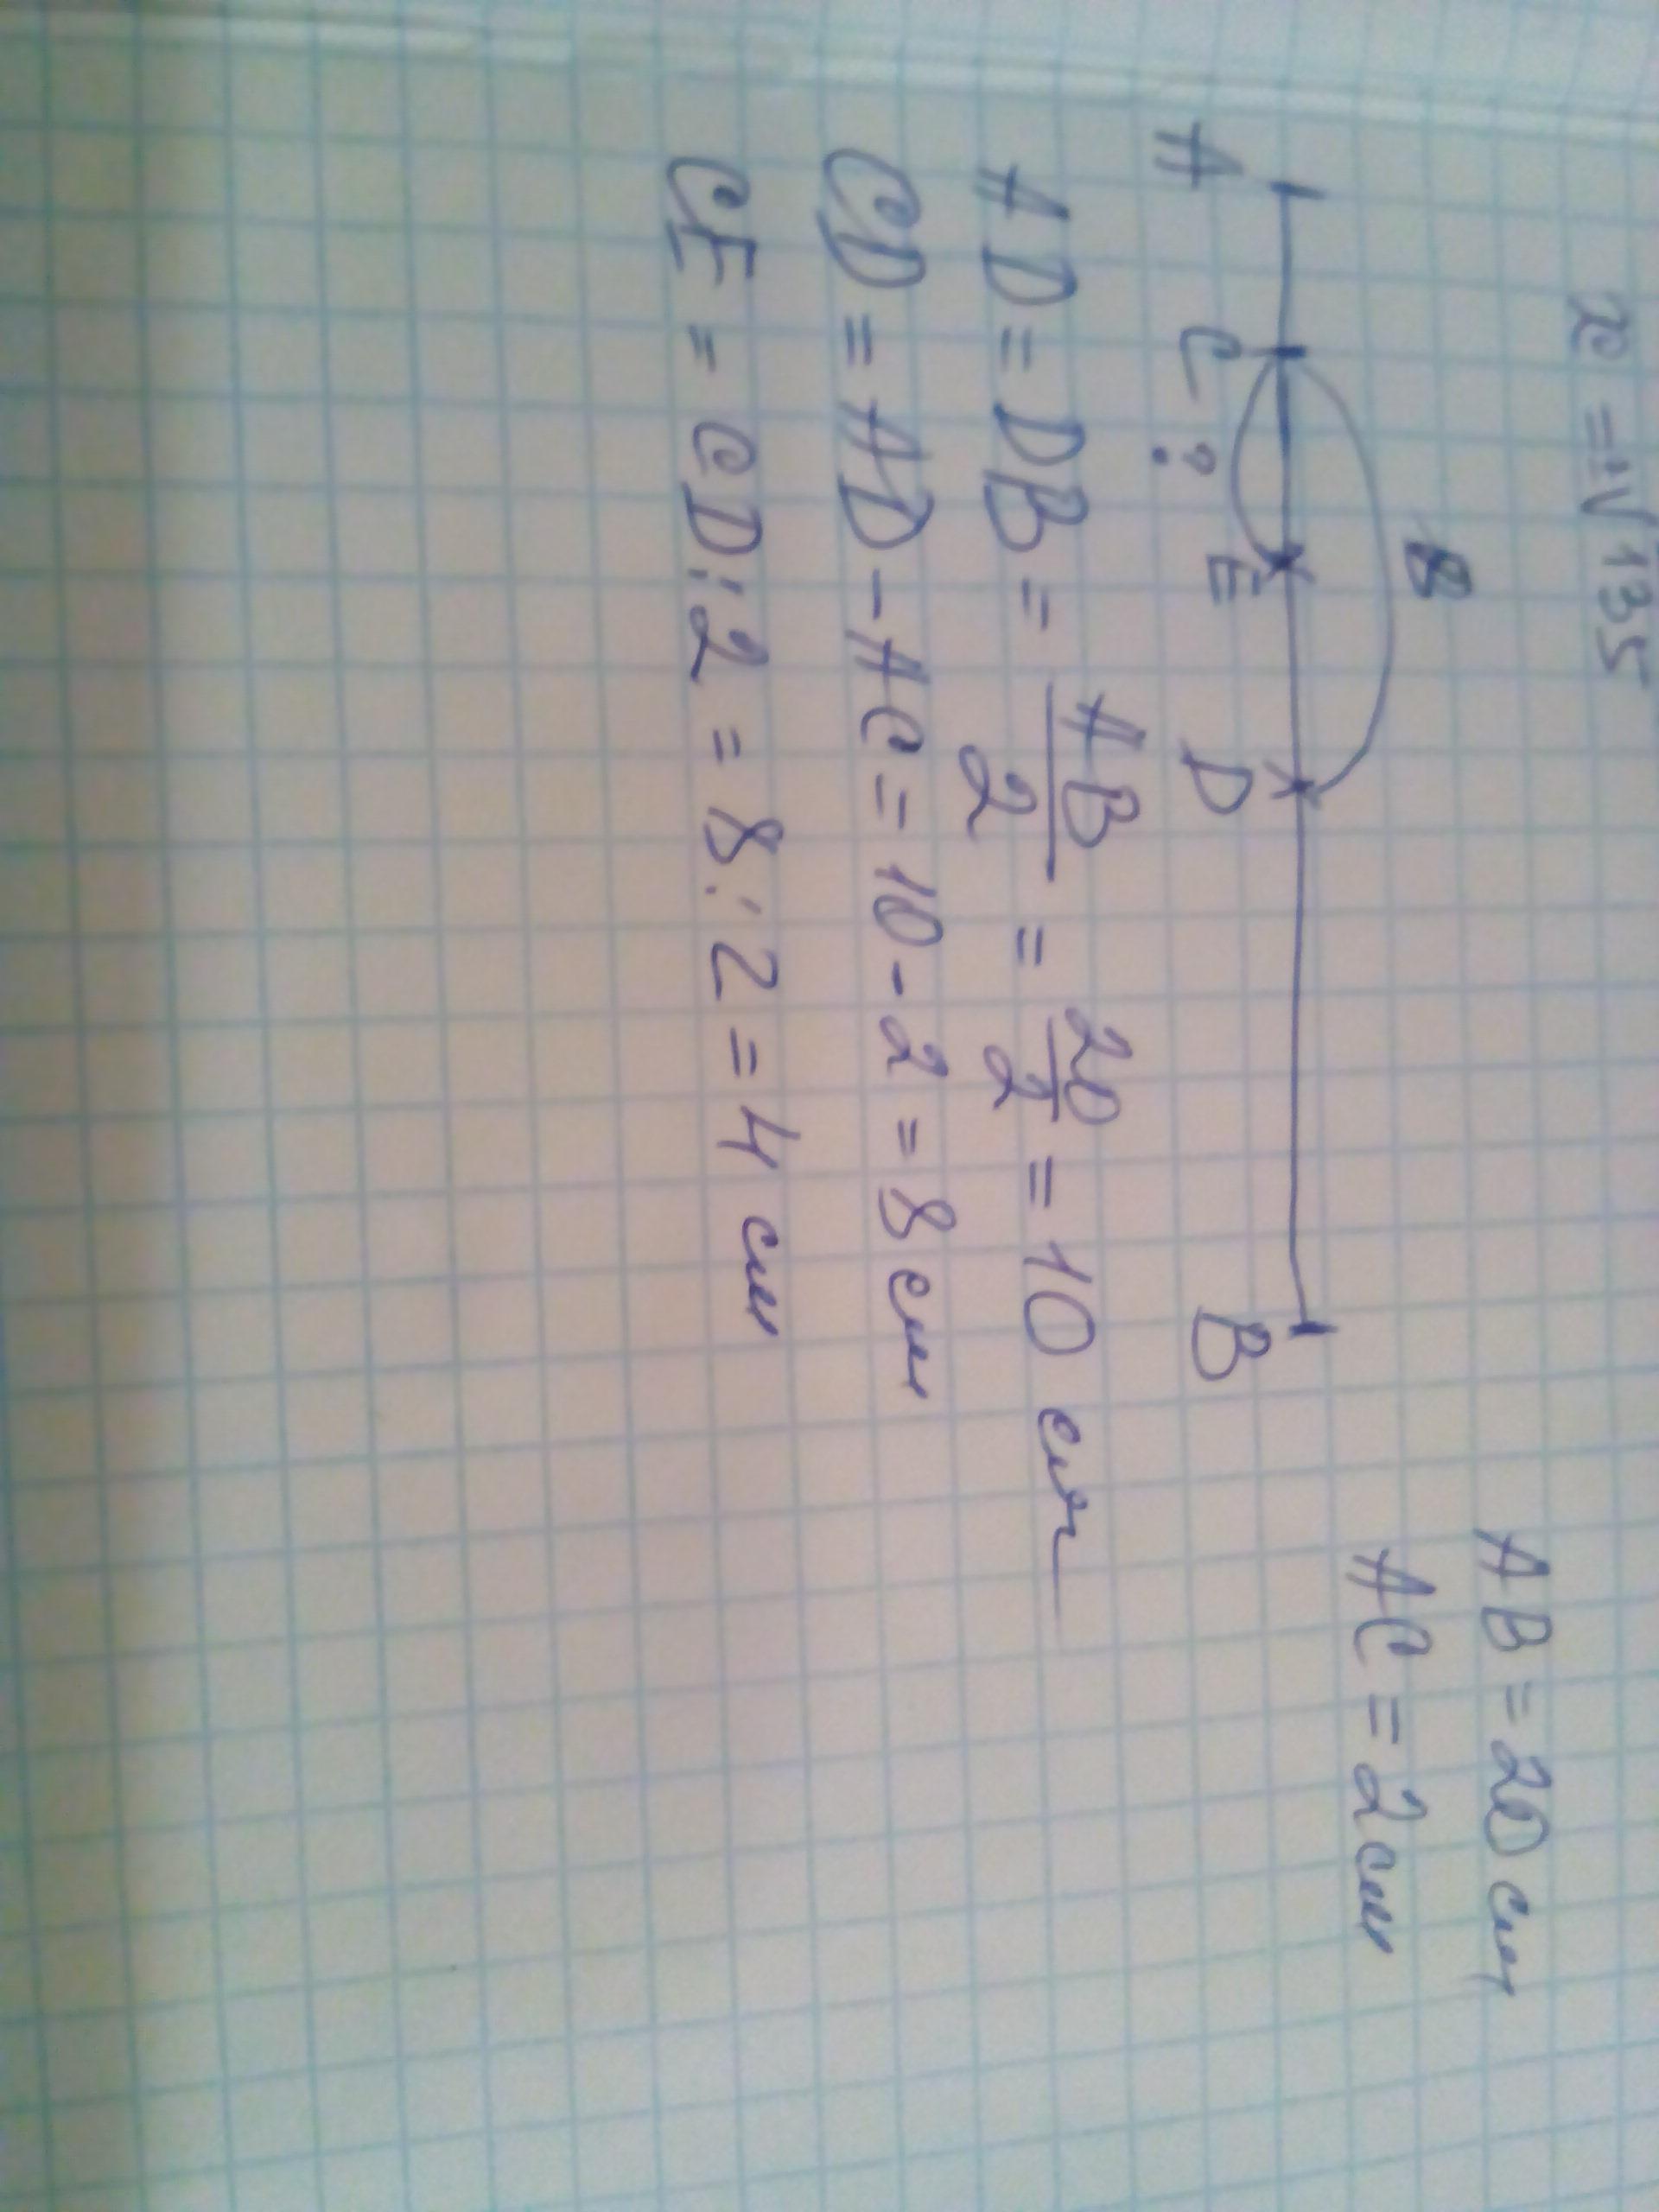 x = √135
AB = 20 см
AC = 2 см
A C ? E D B
AD = DB = AB/2 = 20/2 = 10 см
CD = AD - AC = 10 - 2 = 8 см
CE = CD : 2 = 8 : 2 = 4 см